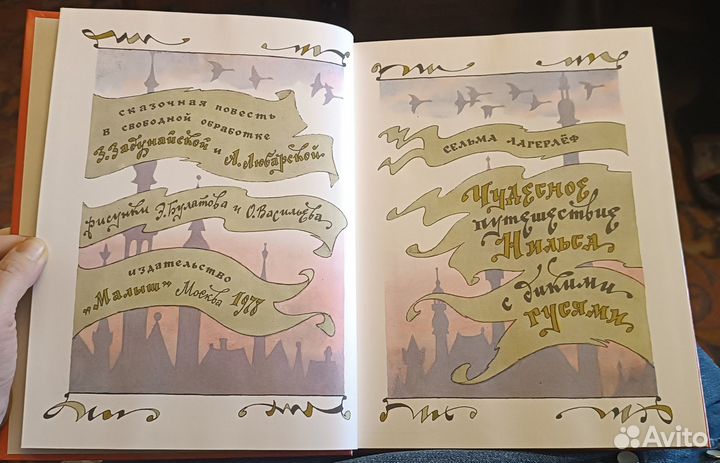 сказочная повесть
в свободной обработке
З. Задунайской и А. Любарской.
рисунки Э. Булатова и О. Васильева
издательство
„Малыш" Москва 1978
Сельма Лагерлёф
Чудесное
путешествие
Нильса
с дикими
гусями
Avito